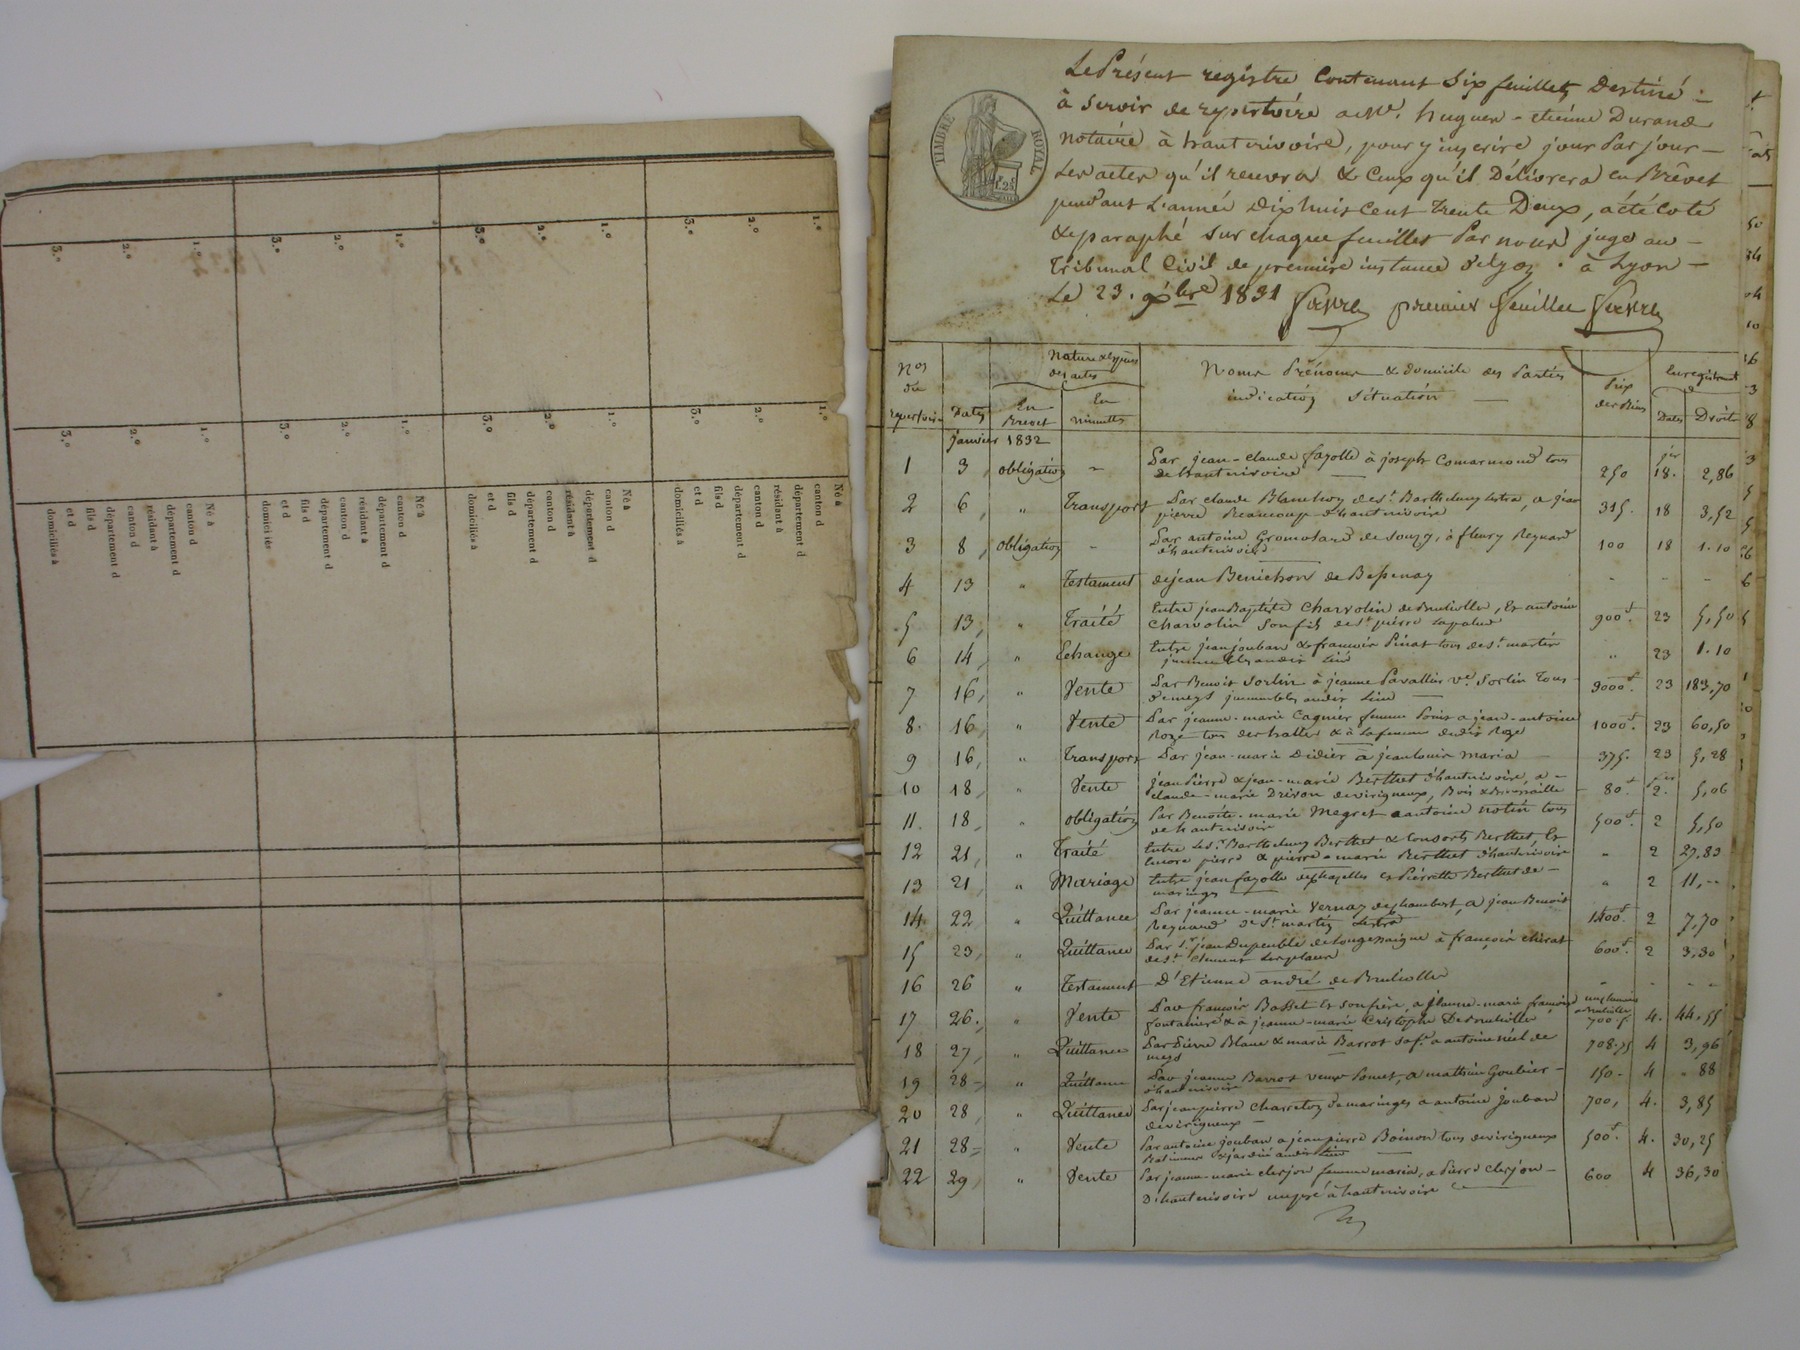 Le Présent registre Contenant Six feuillets Destiné
à servir de repertoire a Me. hugues-etienne Durand
notaire à hauterivoire, pour y inscrire jour Par jour
Les actes qu'il recevra & Ceux qu'il Délivrera en Brevet
pendant L'année Dix huit Cent Trente Deux, a été Coté
& paraphé Sur chaque feuillet Par nous juge au
Tribunal Civil de premiere instance de Lyon. à Lyon
Le 23. xbre 1831 premier feuillet
TIMBRE ROYAL
Nos du repertoire
Dates
Nature & Espèces des actes
En Brevet
En minutes
Noms Prénoms & domicile des Parties
indication Situation
Prix des Biens
Enregistrement
Dates
Droits
janvier 1832
1 3 obligation Par jean-claude fayolle à joseph Comarmond tous 250 18. 2,86
de hauterivoire
2 6 " Transport Par claude Blanchon de St. Barthelemy Lestra, a jean 315. 18 3,52
pierre Beaucoup d'hauterivoire
3 8 obligation Par antoine de Souzy, à fleury Reynard 100 18 1.10
d'hauterivoire
4 13 " Testament de jean Benichon de Bessenay
5 13 " Traité Entre jean Baptiste Charvolin de Brullioles, Et antoine 900 23 5,50
Charvolin Son fils de St. pierre Lapalud
6 14 " Echange Entre jean jouban & francois Pinat tous de St. martin " 23 1.10
immeubles audit Lieu
7 16 " Vente Par Benoit Sorlin à jeanne Pavallier Ve. Sorlin Tous 3000 23 183,70
de meys immeubles audit Lieu
8. 16 " Vente Par jeanne-marie Cagnier femme a jean-antoine 1000 23 60,50
Roze tous des halles & à La femme dudit Roze
9 16 " Transport Par jean-marie Didier à jean Louis Maria 375. 23 5,28
10 18 " Vente jean Pierre & jean-marie Berthet d'hauterivoire, a 80 2. 5,06
claude-marie Drivon de virigneux, Bois & Broussaille
11. 18 " obligation Par Benoite-marie Megret a antoine tous 500 2 5,50
de hauterivoire
12 21 " Traité Entre Les Barthelemy Berthet & Consorts Berthet, Et " 2 27,83
encore pierre & pierre-marie Berthet d'hauterivoire
13 21 " Mariage Entre jean fayolle de chazelles Et Pierrette Berthet de " 2 11,--
maringes
14 22 " Quittance Par jeanne-marie Vernay de chambost, a jean Benoit 1400 2 7,70
Reynard de St martin Lestra
15 23 " Quittance Par Sr. jean Dupeuble de Longessaigne à françois chirat 600 2 3,30
de St. Clement Les places
16 26 " Testament D'Etienne andré de Brullioles
17 26. " Vente Par françois Basset Et son frère, a 700. f 4. 44,55
fontanière & à jeanne-marie Cristophe De Brullioles
18 27 " Quittance Par Pierre Blanc & marie Barrot Sa fe. a antoine de 708.75 4 3,96
meys
19 28 " Quittance Par jeanne Barrot veuve Poncet, a mathieu Goubier 150. 4 88
d'hauterivoire
20 28 " Quittance Par jean pierre Charreton de maringes a antoine jouban 700, 4. 3,85
de virigneux
21 28 " Vente Par antoine jouban a jean pierre Boinon tous de virigneux 500 4. 30,25
Batiment & jardin audit Lieu
22 29 " Vente Par jeanne-marie clerjon femme maria, a Pierre clerjon 600 4 36,30
D'hauterivoire un pré à hauterivoire
1.º
2.º
3.º
Né à
canton d
département d
résidant à
canton d
département d
fils d
et d
domiciliés à